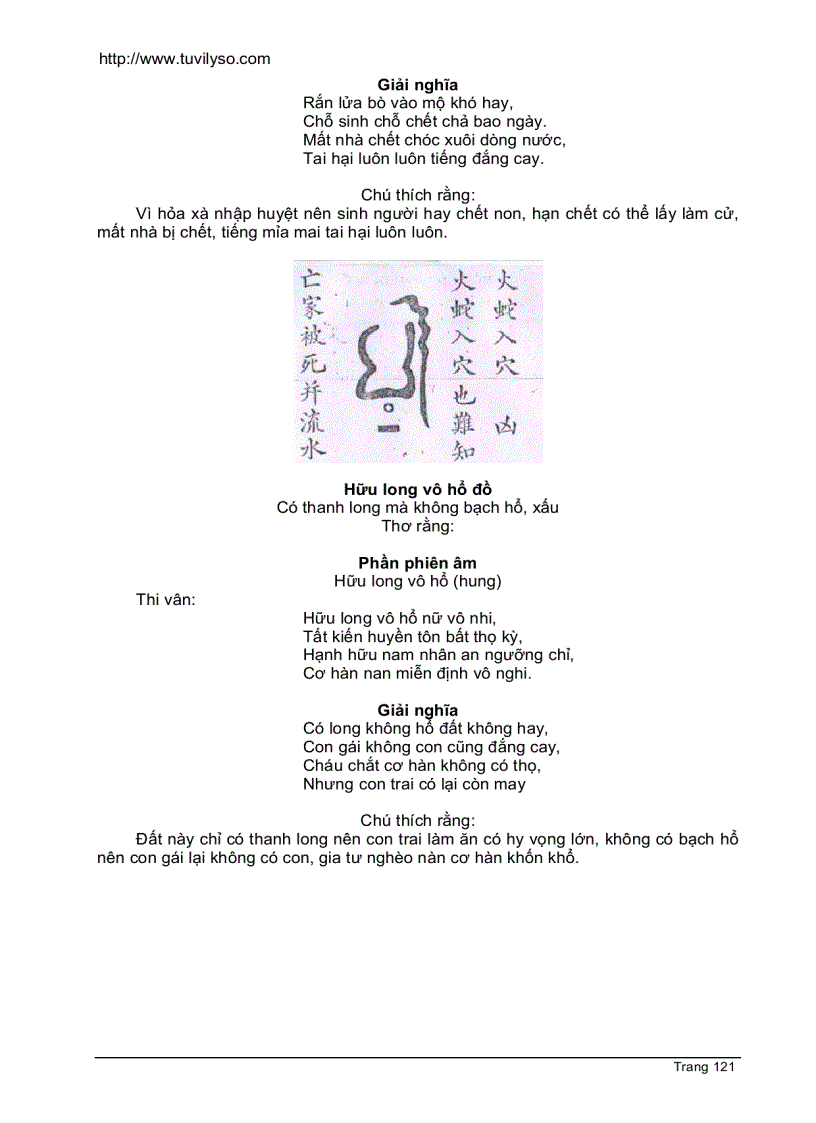 http://www.tuvilyso.com
Giải nghĩa
Rắn lửa bò vào mộ khó hay,
Chỗ sinh chỗ chết chả bao ngày.
Mất nhà chết chóc xuôi dòng nước,
Tai hại luôn luôn tiếng đắng cay.
Chú thích rằng:
Vì hỏa xà nhập huyệt nên sinh người hay chết non, hạn chết có thể lấy làm cử,
mất nhà bị chết, tiếng mỉa mai tai hại luôn luôn.
火蛇入穴 凶
火蛇入穴也難知
亡家被死并流水
Hữu long vô hổ đồ
Có thanh long mà không bạch hổ, xấu
Thơ rằng:
Phần phiên âm
Hữu long vô hổ (hung)
Thi vân:
Hữu long vô hổ nữ vô nhi,
Tất kiến huyền tôn bất thọ kỳ,
Hạnh hữu nam nhân an ngưỡng chỉ,
Cơ hàn nan miễn định vô nghi.
Giải nghĩa
Có long không hổ đất không hay,
Con gái không con cũng đắng cay,
Cháu chắt cơ hàn không có thọ,
Nhưng con trai có lại còn may
Chú thích rằng:
Đất này chỉ có thanh long nên con trai làm ăn có hy vọng lớn, không có bạch hổ
nên con gái lại không có con, gia tư nghèo nàn cơ hàn khốn khổ.
Trang 121